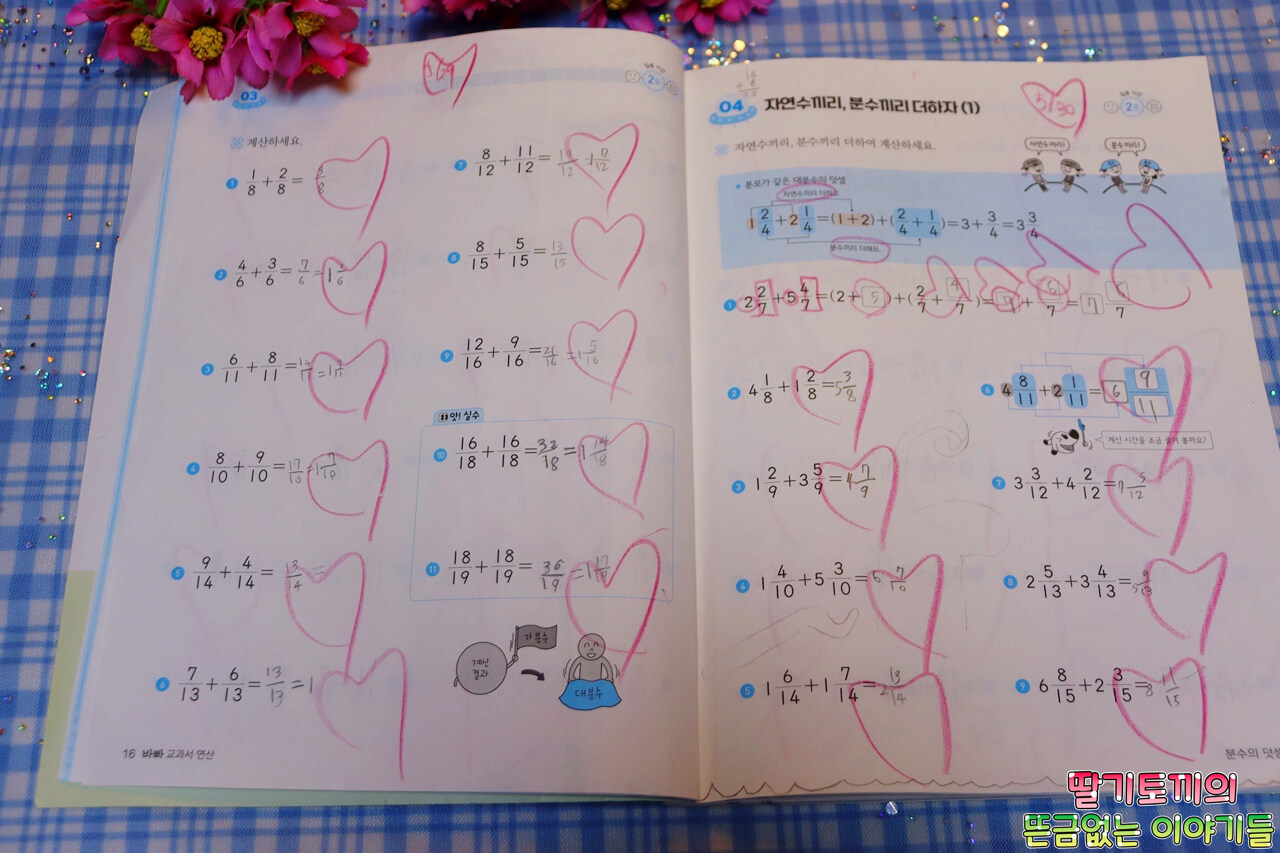 03
계산하세요.
1 1/8 + 2/8 = 3/8
2 4/6 + 3/6 = 7/6 = 1 1/6
3 6/11 + 8/11 = 14/11 = 1 3/11
4 8/10 + 9/10 = 17/10 = 1 7/10
5 9/14 + 4/14 = 13/14 =
6 7/13 + 6/13 = 13/13 = 1
16 바빠 교과서 연산
7 8/12 + 11/12 = 19/12 1 7/12
8 8/15 + 5/15 = 13/15
9 12/16 + 9/16 = 21/16 = 1 5/16
앗! 실수
10 16/18 + 16/18 = 32/18 = 1 14/18
11 18/19 + 18/19 = 36/19 = 1 17/19
계산 결과
가분수
대분수
2분
04 자연수끼리, 분수끼리 더하자 (1)
2분
자연수끼리, 분수끼리 더하여 계산하세요.
자연수끼리!
분수끼리!
• 분모가 같은 대분수의 덧셈
자연수끼리 더해요.
1 2/4 + 2 1/4 = (1+2) + (2/4 + 1/4) = 3 + 3/4 = 3 3/4
분수끼리 더해요.
1 2 2/7 + 5 4/7 = (2 + 5) + (2/7 + 4/7) = 7 + 6/7 = 7 6/7
2 4 1/8 + 1 2/8 = 5 3/8
3 1 2/9 + 3 5/9 = 4 7/9
4 1 4/10 + 5 3/10 = 6 7/10
5 1 6/14 + 1 7/14 = 2 13/14
6 4 8/11 + 2 1/11 = 6 9/11
계산 시간을 조금 줄여 볼까요?
7 3 3/12 + 4 2/12 = 7 5/12
8 2 5/13 + 3 4/13 = 5 9/13
9 6 8/15 + 2 3/15 = 8 11/15
분수의 덧셈
딸기토끼의
뜬금없는 이야기들